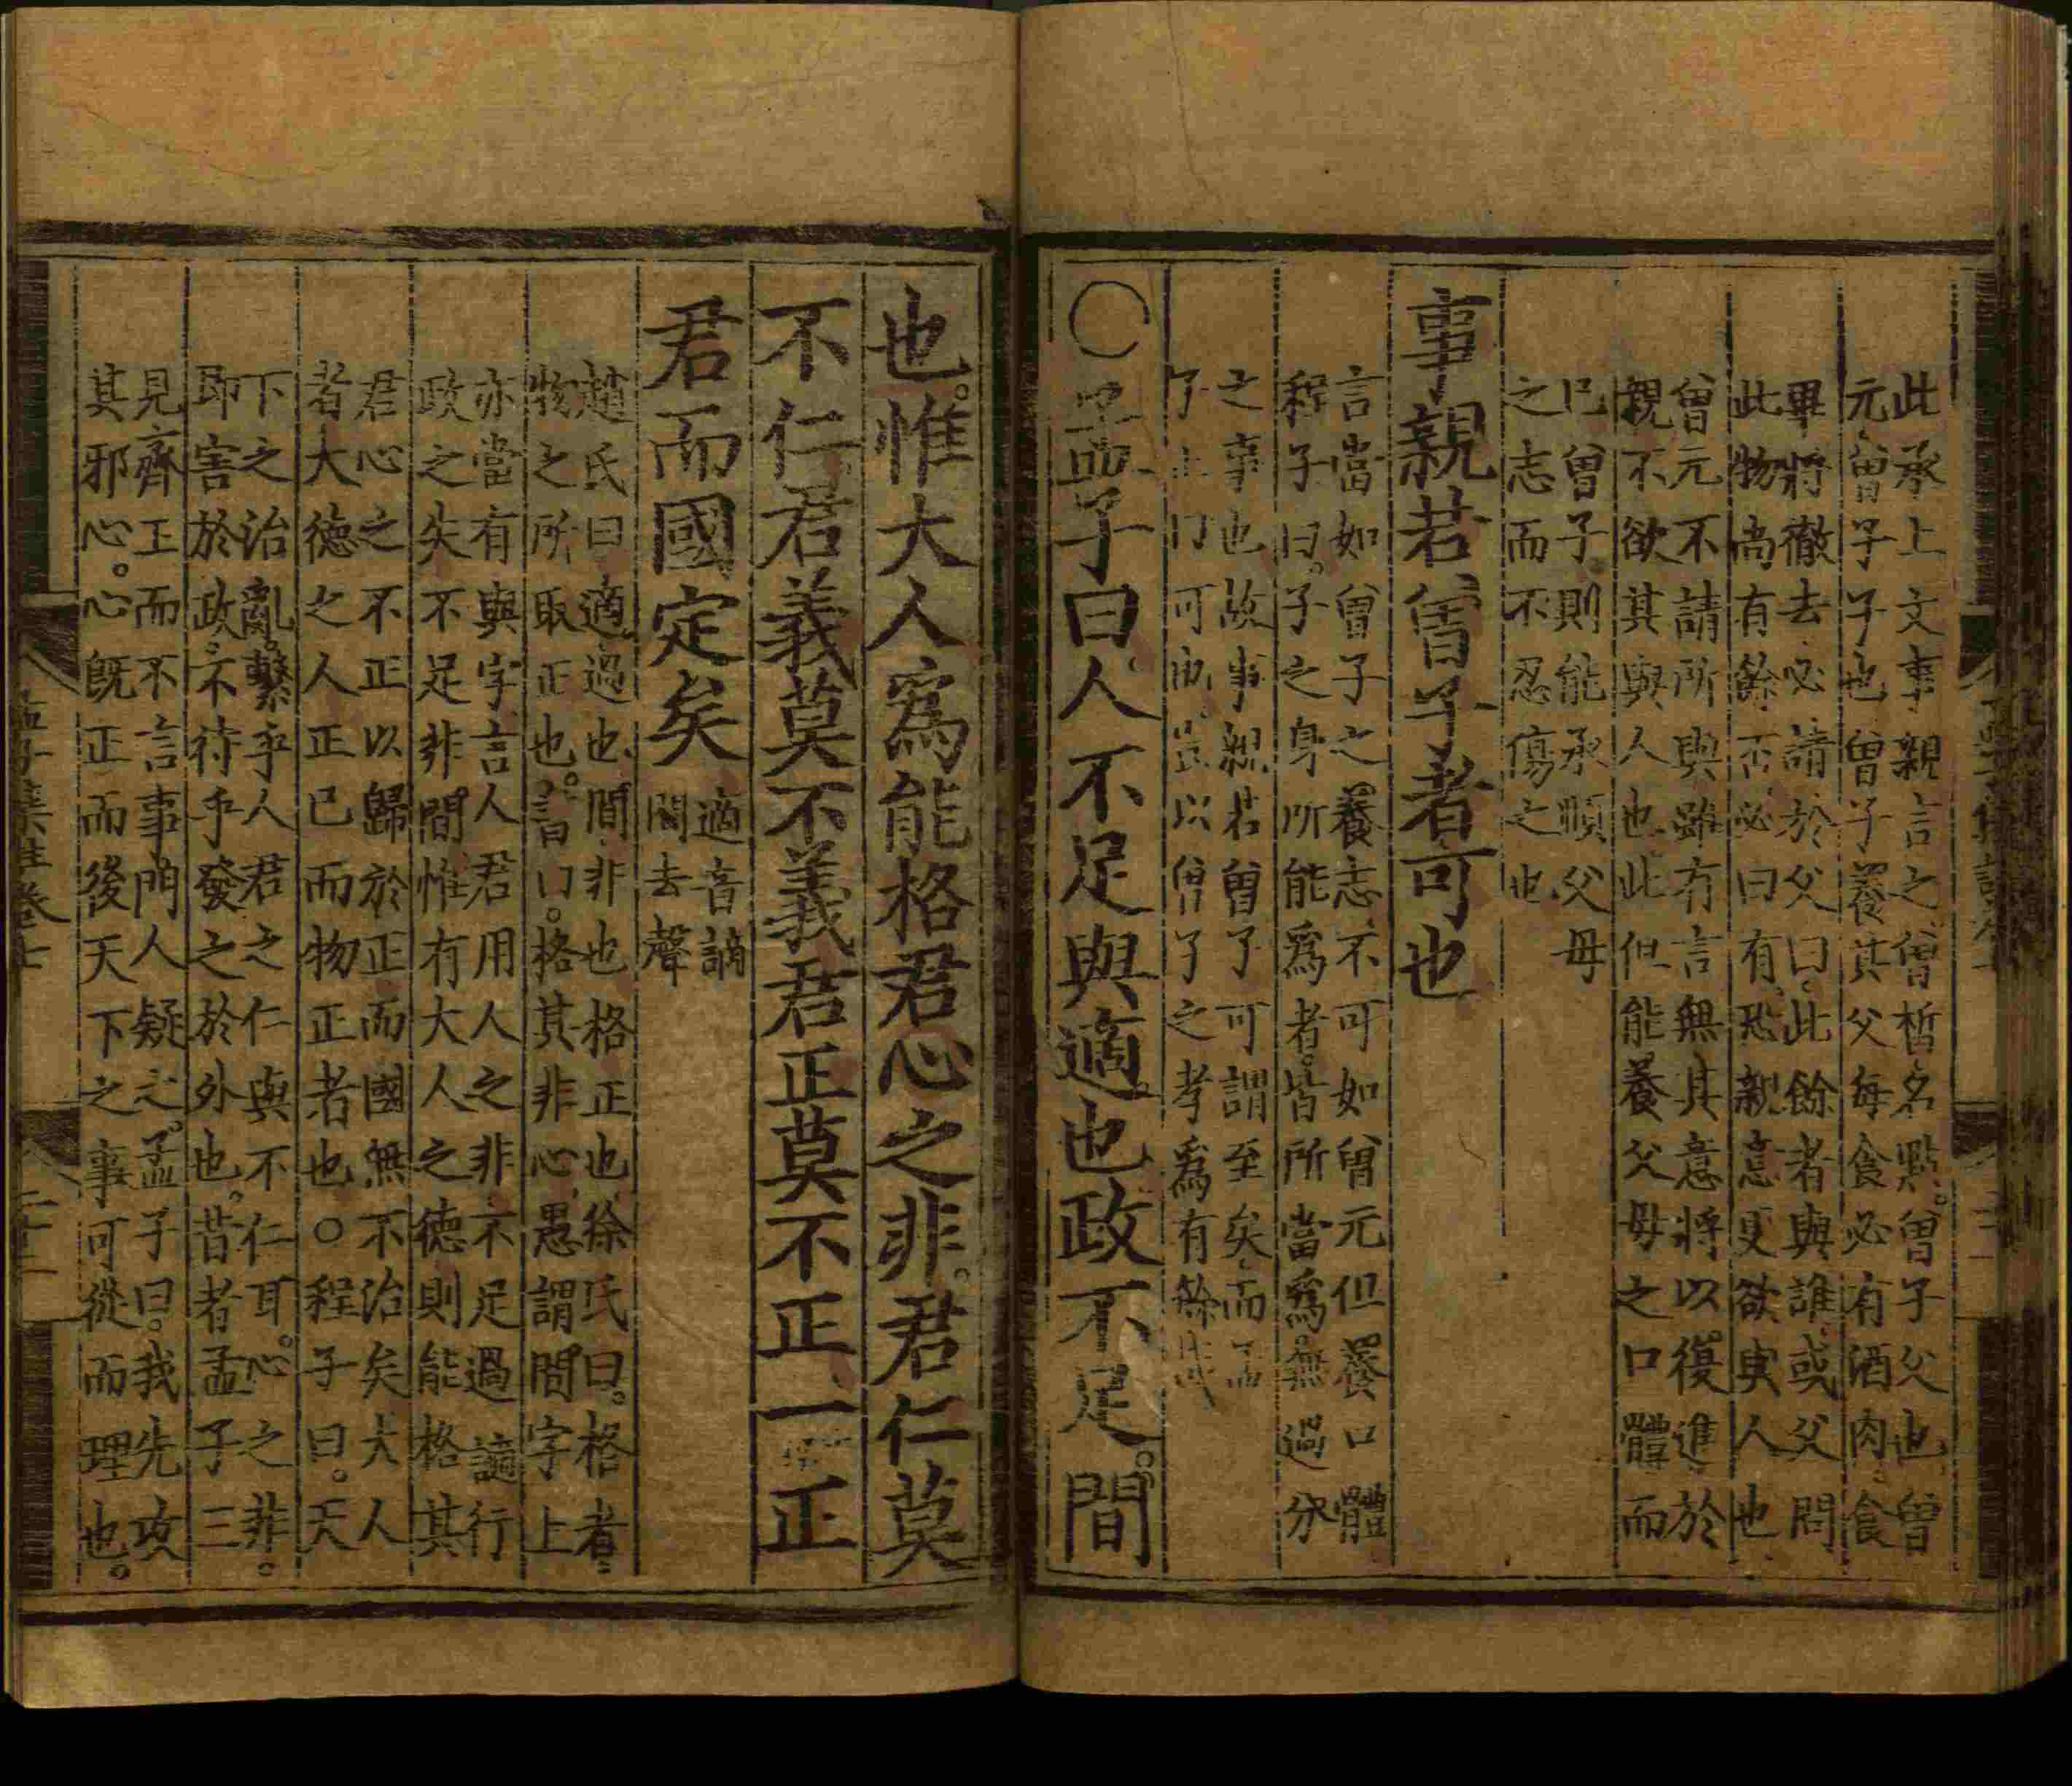 此承上文事親言之曾晳名點。曾子父也曾
元曾子子也曾子養其父每食必有酒肉。食
畢將徹去必請於父曰。此餘者與誰或父問
此物尚有餘否必曰有恐親意更欲與人也
曾元不請所與雖有言無其意將以復進於
親不欲其與人也此但能養父母之口體而
已曾子則能承順父母
之志而不忍傷之也
事親若曾子者可也
言當如曾子之養志不可如曾元但養口體
程子曰。子之身所能爲者。皆所當爲。無過分
之事也故事親若曾子可謂至矣而孟
子止曰可也。豈以曾子之孝爲有餘哉
○孟子曰人不足與適。也政不足。間
也。惟大人爲能格君心之非。君仁莫
不仁君義莫不義君正莫不正一正
君而國定矣
適音謫
間去聲
趙氏曰適。過也間。非也格正也徐氏曰。格者
物之所取正也。書曰。格其非心愚謂間字上
亦當有與字言人君用人之非不足過謫行
政之失不足非間惟有大人之德則能格其
君心之不正以歸於正而國無不治矣大人
者大德之人正已而物正者也○程子曰。天
下之治亂。繫乎人君之仁與不仁耳。心之非。
卽害於政。不待乎發之於外也。昔者孟子三
見齊王而不言事門人疑之。孟子曰。我先攻
其邪心。心旣正而後天下之事可從而理也。
孟子集註卷七
二十一